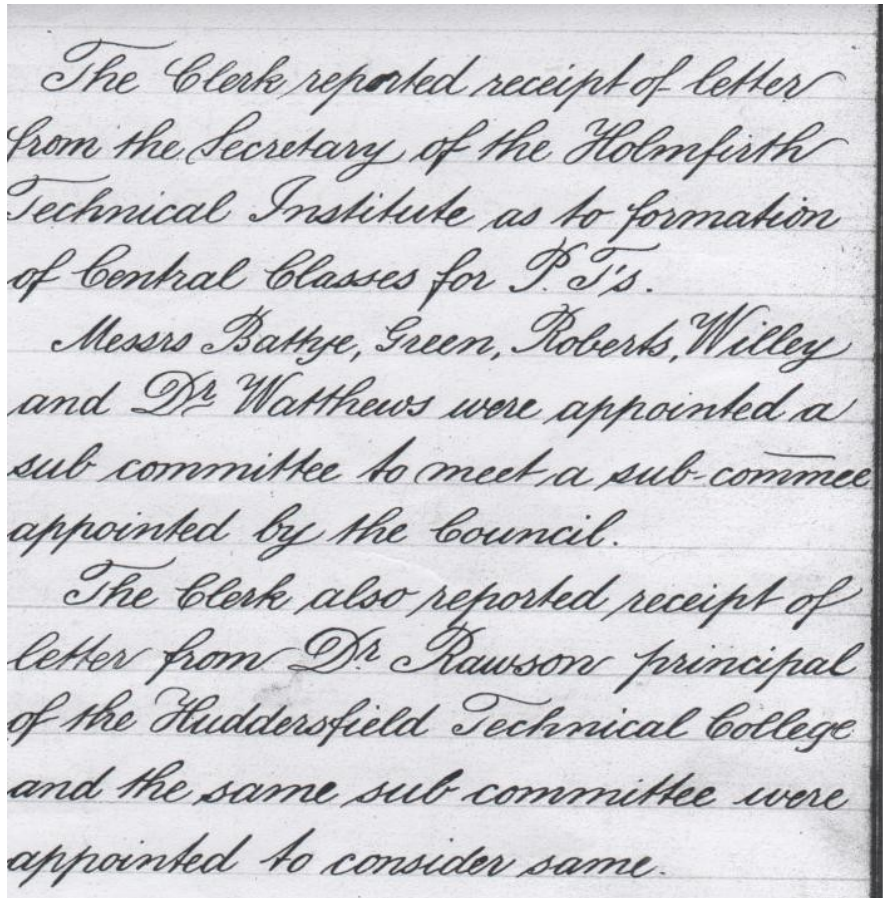 The Clerk reported receipt of letter
from the Secretary of the Holmfirth
Technical Institute as to formation
of Central Classes for P. T's.
Messrs Battye, Green, Roberts, Willey
and Dr Watthews were appointed a
sub committee to meet a sub-commee
appointed by the Council.
The Clerk also reported receipt of
letter from Dr Rawson principal
of the Huddersfield Technical College
and the same sub committee were
appointed to consider same.